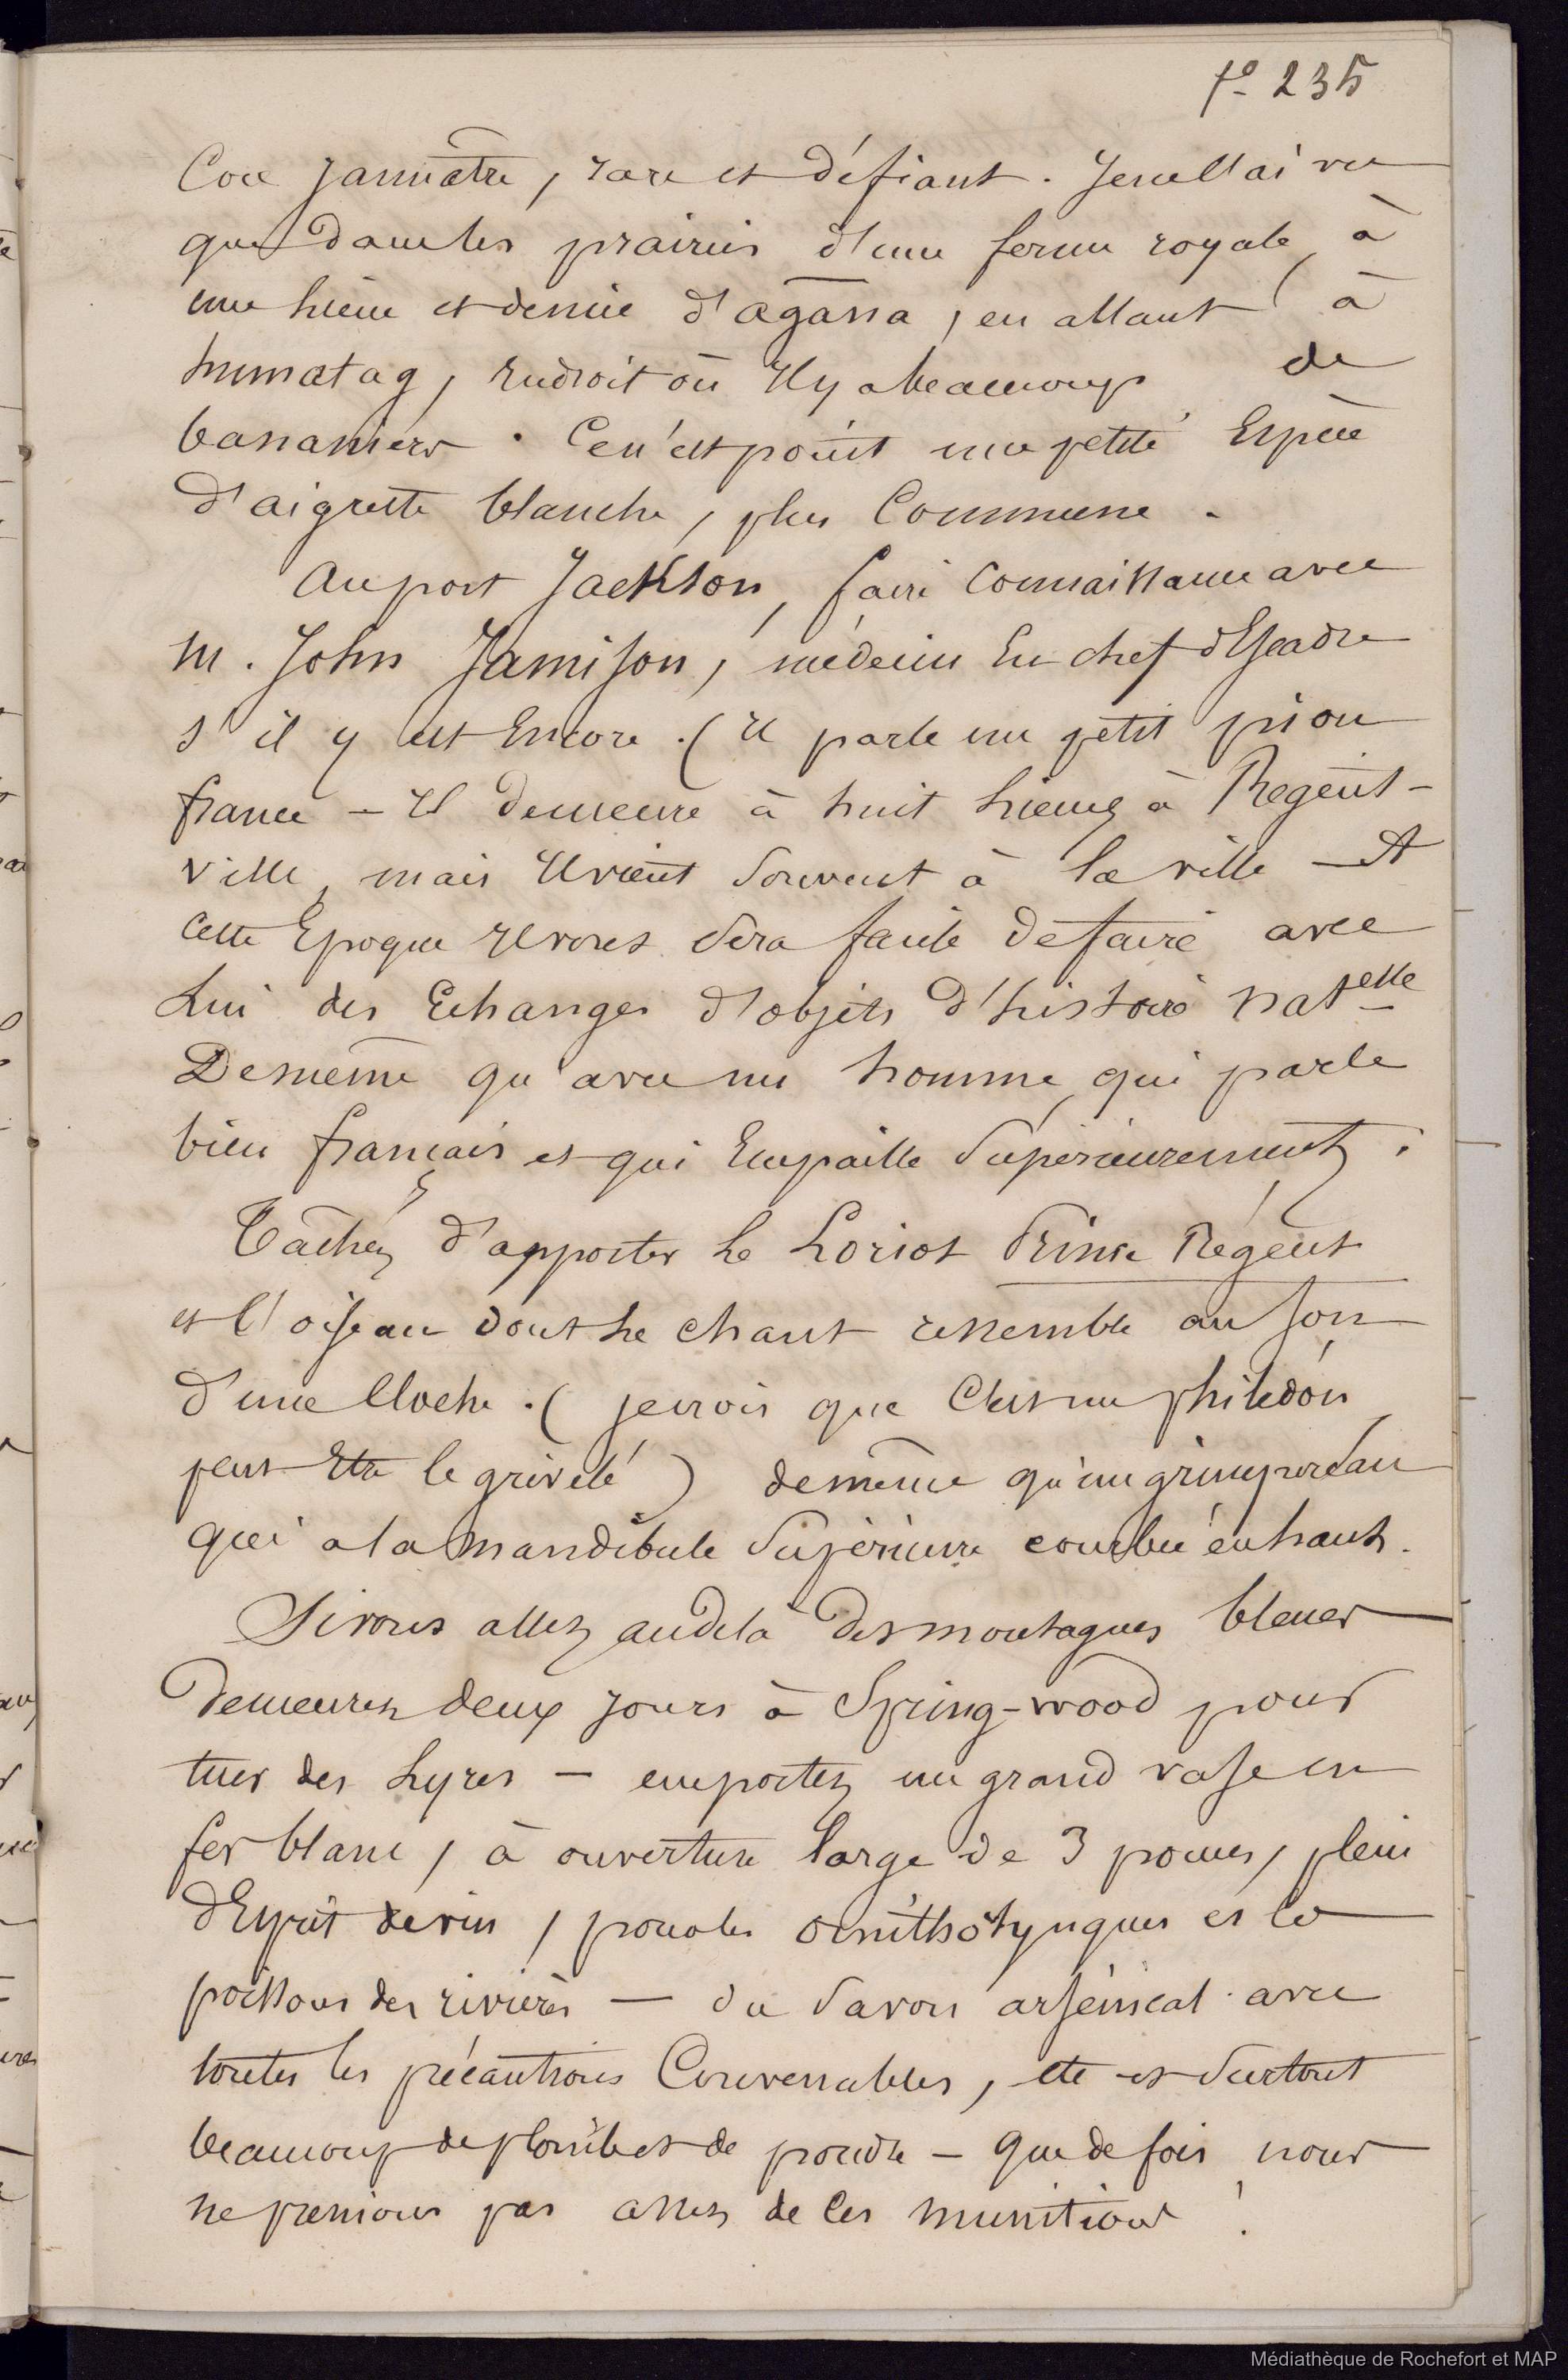 fo 235
Cou jaunâtre, rare et défiant. Je ne l'ai vu
que dans les prairies d'une ferme royale, à
une lieue et demie d'agana, en allant à
humatag, Endroit où Il y a beaucoup de
bananiers. Ce n'est point une petite Espèce
d'aigrette blanche, plus Commune.
au port Jackson, faire Connaissance avec
M. John Jamison, médecin En chef d'Escadre
s'il y est Encore. (Il parle un petit peu
france — Il demeure à huit lieues à Regent-
ville, mais Il vient Souvent à la ville — A
cette Epoque Il vous Sera facile de faire avec
Lui des Echanges d'objets d'histoire natelle
De même qu'avec un homme qui parle
bien français et qui Empaille Supérieurement.
Tachez d'apporter le Loriot Prince Régent
et l'oiseau dont le chant ressemble au son
d'une Cloche. (je crois que C'est un philédon
peut Etre le grivelé) de même qu'un grimpereau
qui a la mandibule Supérieure courbée en haut.
Si vous allez au delà des montagnes bleues
Demeurez deux jours à Spring-wood pour
tuer des Lyres — emportez un grand vase en
fer blanc, à ouverture large de 3 pouces, plein
d'Esprit de vin, pour les ornithorynques et les
poissons des rivières — du Savon arsénical avec
toutes les précautions Convenables, etc et Surtout
beaucoup de plomb et de poudre — que de fois nous
ne prenions pas assez de ces munitions !
Médiathèque de Rochefort et MAP